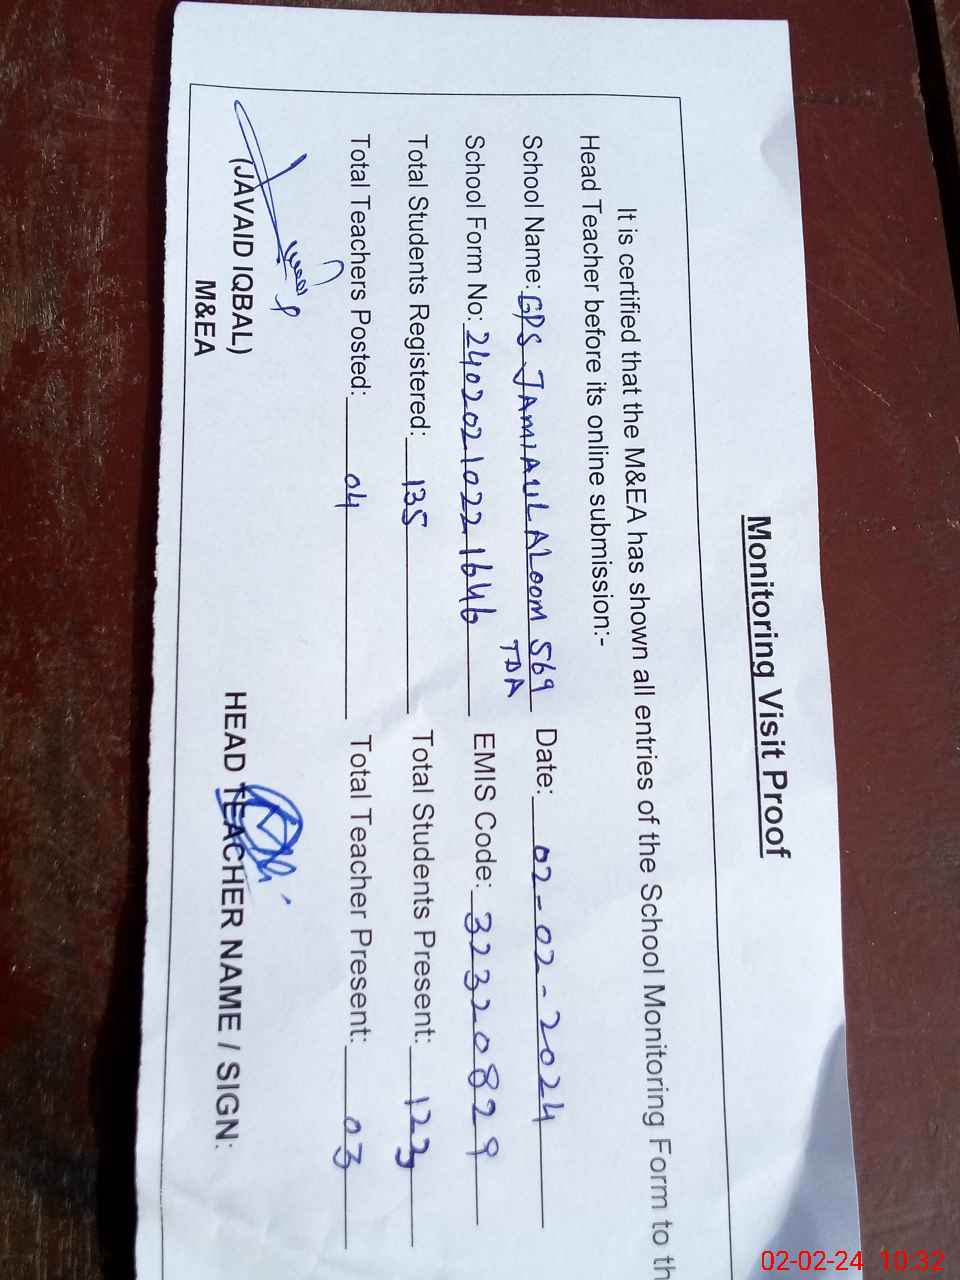 Monitoring Visit Proof
It is certified that the M&EA has shown all entries of the School Monitoring Form to th
Head Teacher before its online submission:-
School Name: GPS JAMIAUL ALOOM 569 TDA Date: 02-02-2024
School Form No: 24020210221646 EMIS Code: 32320829
Total Students Registered: 135 Total Students Present: 123
Total Teachers Posted: 04 Total Teacher Present: 03
(JAVAID IQBAL)
M&EA
HEAD TEACHER NAME / SIGN:
02-02-24 10:32